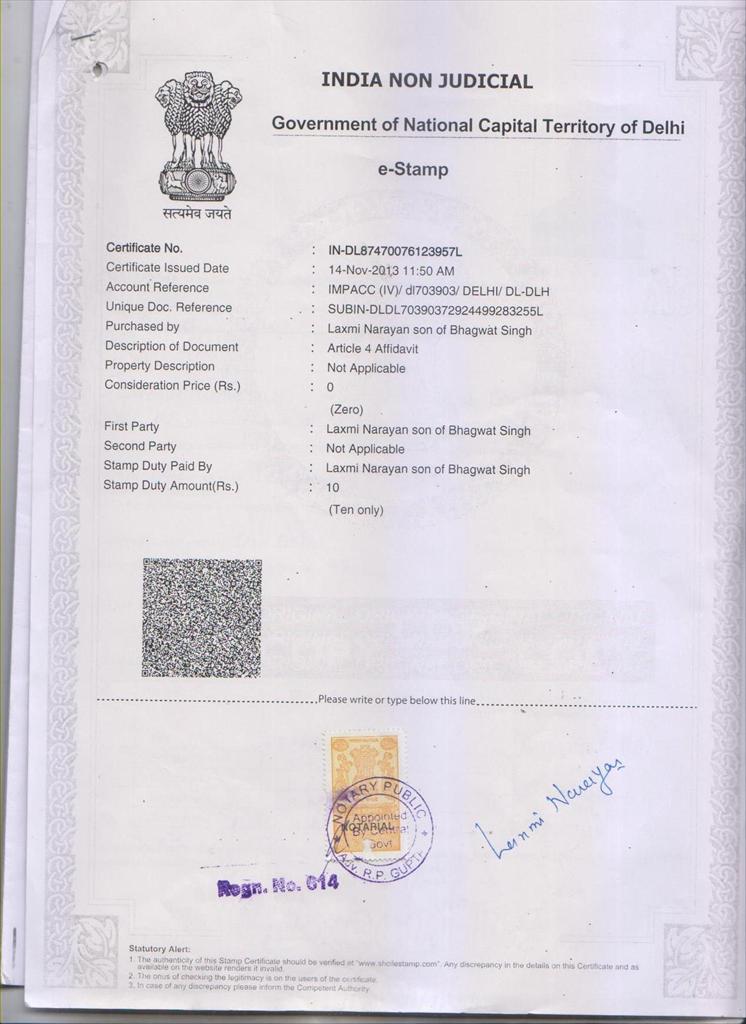 INDIA NON JUDICIAL
Government of National Capital Territory of Delhi
e-Stamp
सत्यमेव जयते
Certificate No. : IN-DL87470076123957L
Certificate Issued Date : 14-Nov-2013 11:50 AM
Account Reference : IMPACC (IV)/ dl703903/ DELHI/ DL-DLH
Unique Doc. Reference : SUBIN-DLDL70390372924499283255L
Purchased by : Laxmi Narayan son of Bhagwat Singh
Description of Document : Article 4 Affidavit
Property Description : Not Applicable
Consideration Price (Rs.) : 0
(Zero)
First Party : Laxmi Narayan son of Bhagwat Singh
Second Party : Not Applicable
Stamp Duty Paid By : Laxmi Narayan son of Bhagwat Singh
Stamp Duty Amount(Rs.) : 10
(Ten only)
Please write or type below this line
NOTARY PUBLIC
Appointed
NOTARIAL
By Central
Govt
Adv. R.P. GUPTA
Laxmi Narayan
Regn. No. 614
Statutory Alert:
1. The authenticity of this Stamp Certificate should be verified at "www.shcilestamp.com". Any discrepancy in the details on this Certificate and as
available on the website renders it invalid.
2. The onus of checking the legitimacy is on the users of the certificate.
3. In case of any discrepancy please inform the Competent Authority.